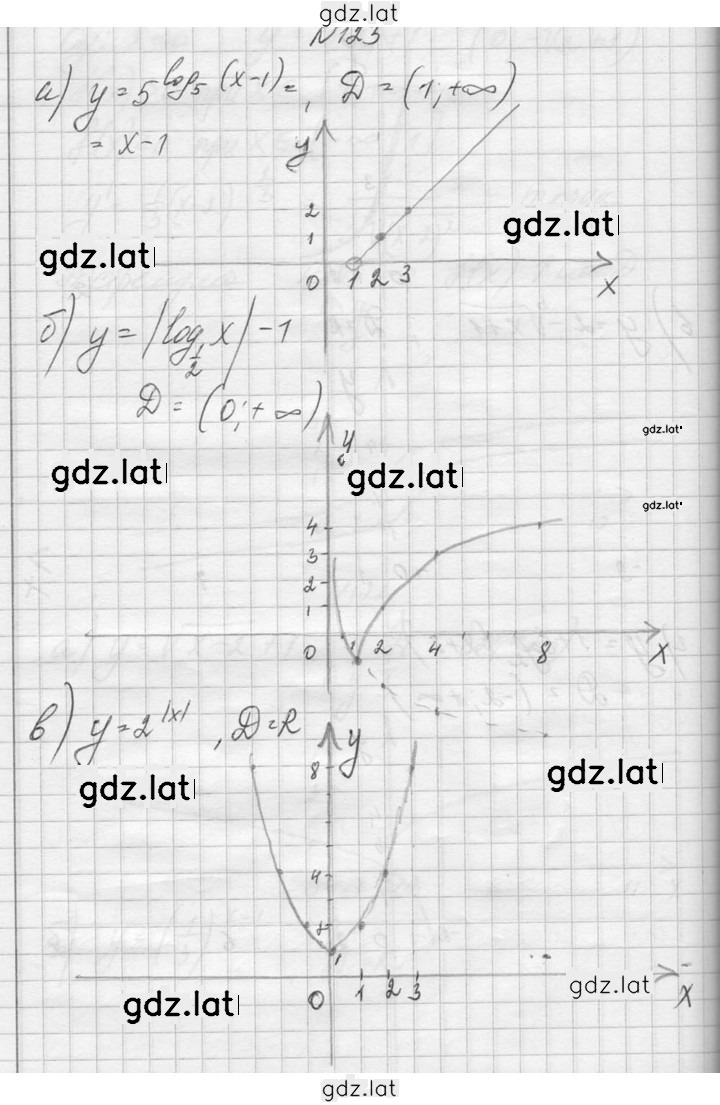 gdz.lat
N123
а) y = 5^log₅(x-1) = , D = (1; +∞)
= x-1
y
2
1
gdz.lat
gdz.lat
0 1 2 3
x
б) y = |log_1/2 x| - 1
D = (0; +∞)
y
gdz.lat
gdz.lat
gdz.lat
gdz.lat
4
3
2
1
0 1 2 4 8 x
в) y = 2^|x| , D = R
y
8
gdz.lat
gdz.lat
4
2
1
gdz.lat
gdz.lat
0 1 2 3 x
gdz.lat